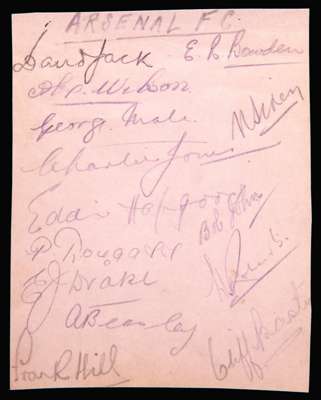 ARSENAL F.C.
David Jack E. R. Bowden
Alex. Wilson.
George Male.
Charlie Jones
Eddie Hapgood
Bob John
P. Dougall
E J Drake
A Beasley
Cliff Bastin
Frank Hill